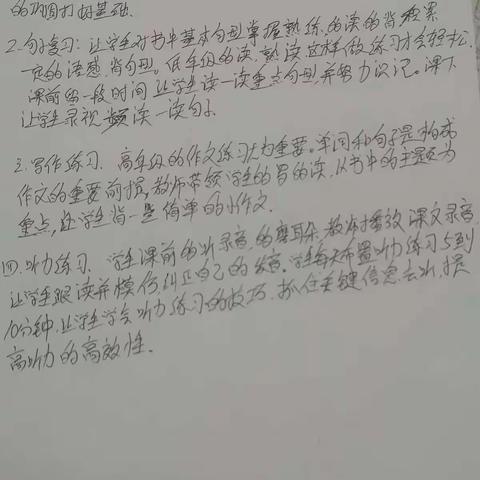 的巩固打好基础.
2.句子复习:让学生对书中基本句型掌握熟练,的读的背,积累
一定的语感,背句型。低年级的读,熟读这样做练习才会轻松,
课前留一段时间让学生读一读重点句型,并努力识记。课下
让学生录视频读一读句子.
3.写作练习.高年级的作文练习尤为重要。单词和句子是构成
作文的重要前提,教师带领学生的多的读,从书中的主题为
重点,让学生背一些简单的小作文.
四.听力练习.学生课前的听录音,的磨耳朵,教师播放课文录音,
让学生跟读并模仿纠正自己的发音。学生每天布置听力练习5到
10分钟,让学生学会听力练习的技巧.抓住关键信息去听,提
高听力的高效性.